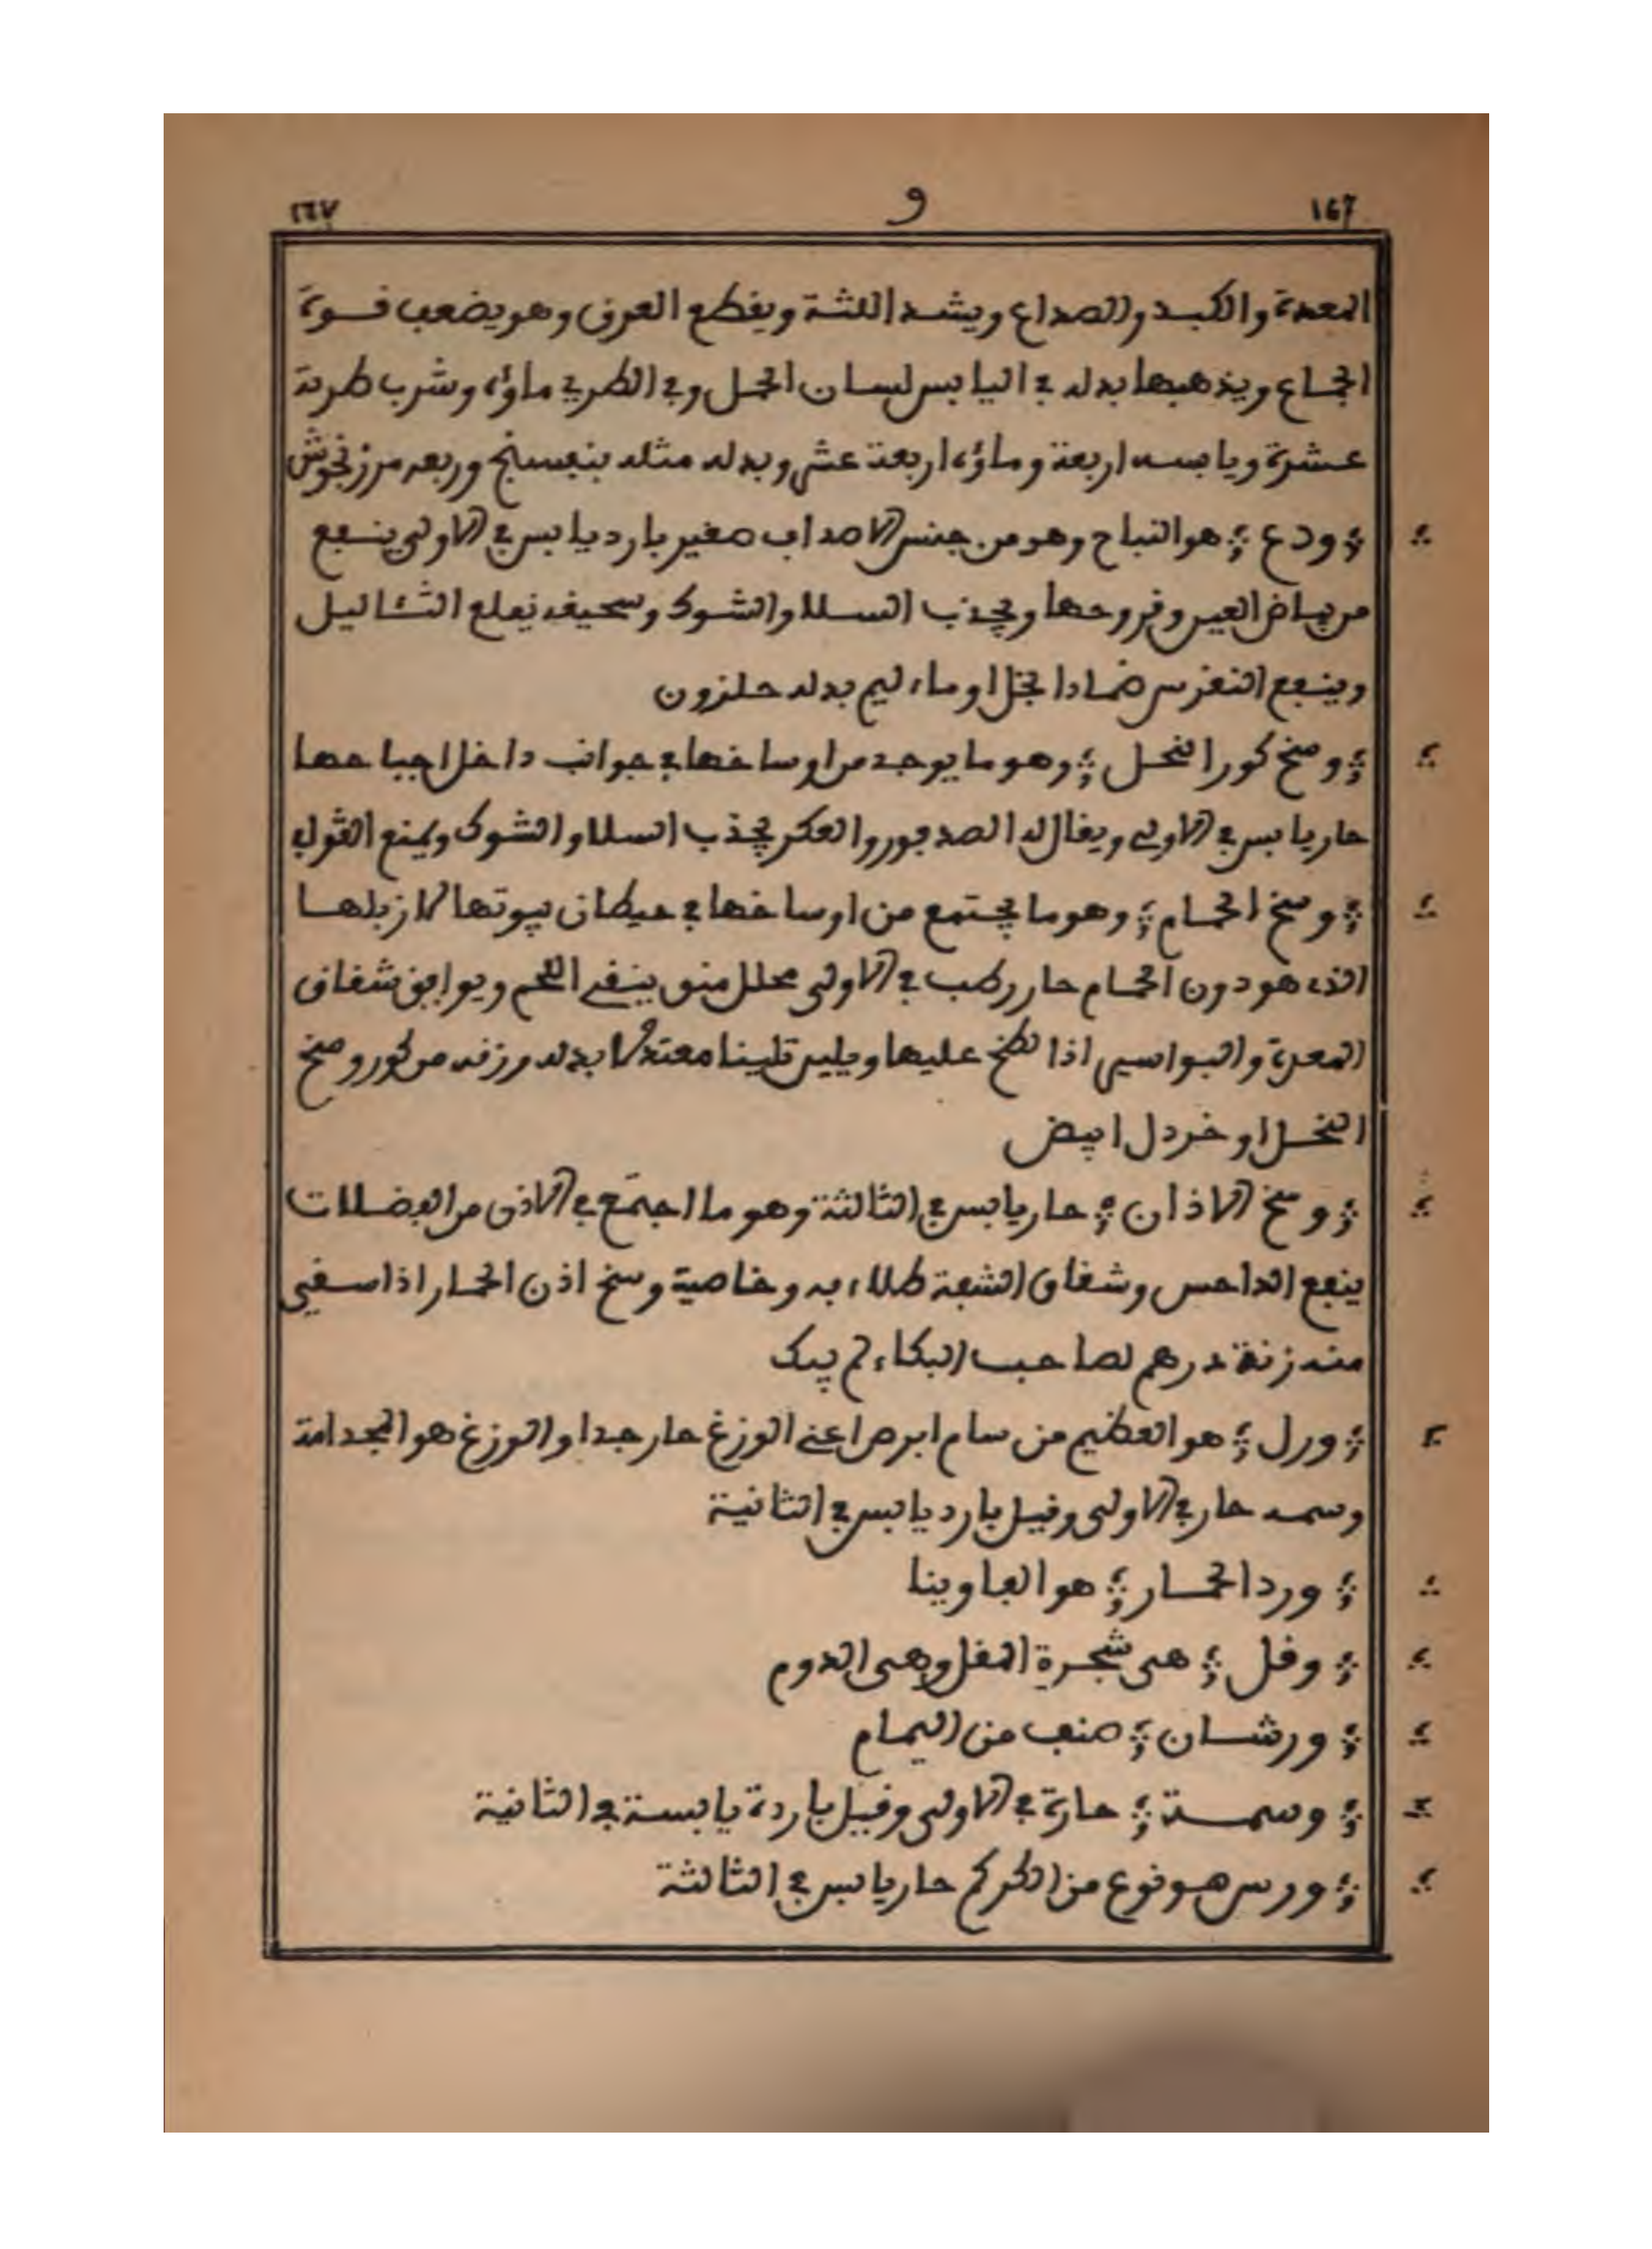 167 و ١٦٧
المعدة والكبد والصداع ويشد اللثة ويقطع العرق وهو يضعف قوة
الجماع ويذهبها بدله في اليابس لسان الحمل وفي الطري ماؤه وشرب طريه
عشرة ويابسه اربعة وماؤه اربعة عشر وبدله مثله بنفسنج وربعه مرزنجوش
ودع هو التباح وهو من جنس الاصداف صغير بارد يابس في الاولى ينفع
من بياض العين وقروحها ويجذب السلا والشوك وسحيقه يقلع الثئاليل
وينفع النقرس ضمادا بخل او ماء ليم بدله حلزون
وسخ كور النحل وهو ما يوجد من اوساخها في جوانب داخل اجباحها
حار يابس في الاولى ويقال له الصدبور والعكر يجذب السلا والشوك ويمنع القولب
وسخ الحمام وهو ما يجتمع من اوساخها في حيطان بيوتها لا زبلها
الذى هو دون الحمام حار رطب في الاولى محلل منق ينقي اللحم ويوافق شقاق
المعدة والبواسير اذا لطخ عليها ويلين تليينا معتدلا بدله وزنه من كور وسخ
النحل او خردل ابيض
وسخ الاذان حار يابس في الثالثة وهو ما اجتمع في الاذن من الفضلات
ينفع الداحس وشقاق الشفة طلاء به وخاصية وسخ اذن الحمار اذا سقي
منه زنة درهم لصاحب البكاء لم يبك
ورل هو العظيم من سام ابرص اعني الوزغ حار جدا والوزغ هو المجدامة
وسمه حار في الاولى وقيل بارد يابس في الثانية
ورد الحمار هو الفاوينا
وقل هى شجرة المقل وهى الدوم
ورشان صنف من اليمام
وسمة حارة في الاولى وقيل باردة يابسة في الثانية
ورس هو نوع من الكركم حار يابس في الثالثة